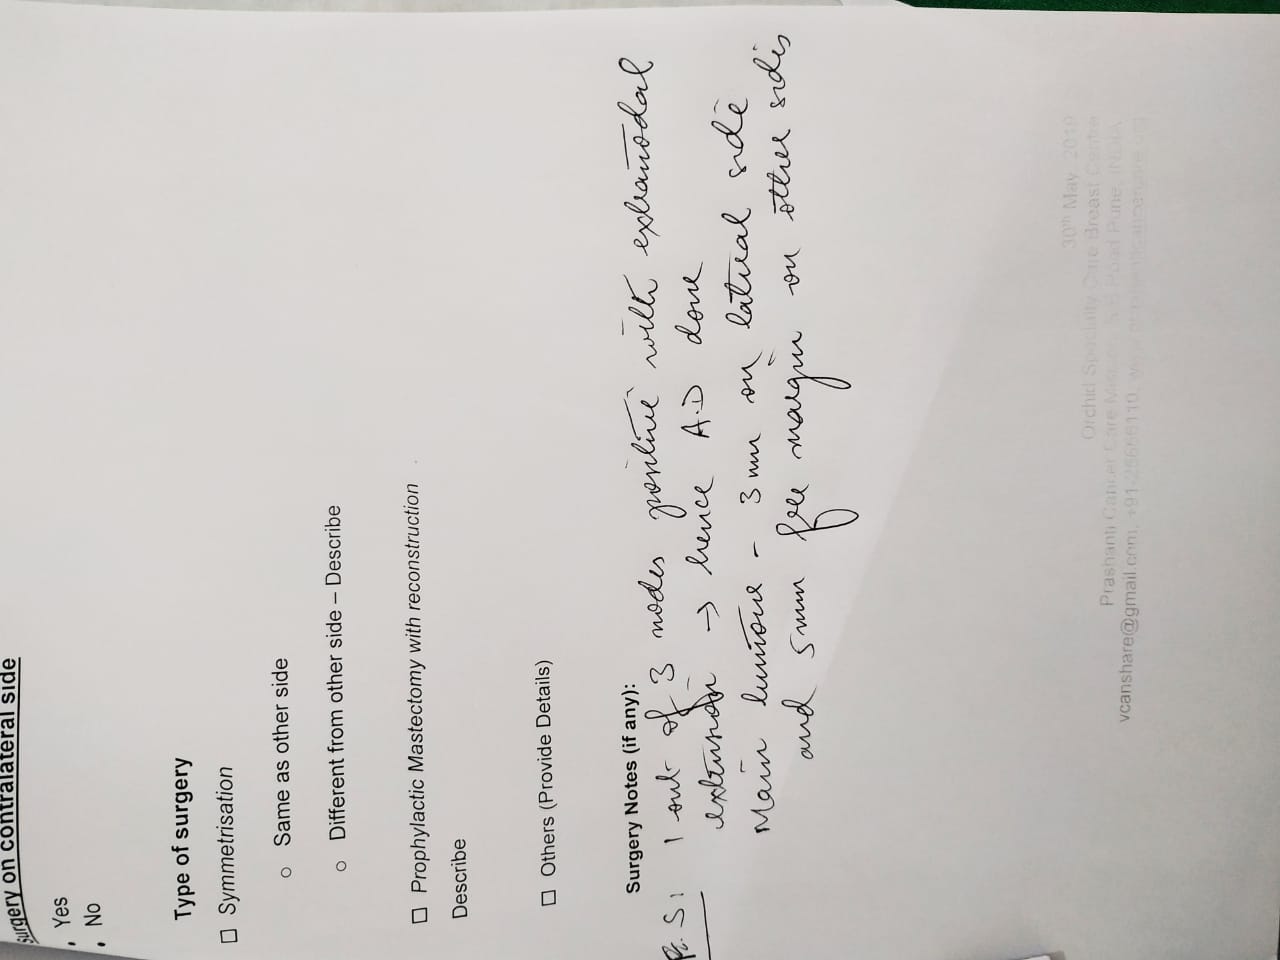 Surgery on contralateral side
• Yes
• No
Type of surgery
□ Symmetrisation
○ Same as other side
○ Different from other side – Describe
□ Prophylactic Mastectomy with reconstruction
Describe
□ Others (Provide Details)
Surgery Notes (if any):
1 out of 3 nodes positive with extranodal
extension → hence A.D done
Main tumour - 3mm on lateral side
and 5mm free margin on other sides
30th May, 2019
Orchid Speciality Care Breast Centre
Prashanti Cancer Care Mission, Road Pune, INDIA
vcanshare@gmail.com, +91-25656110,